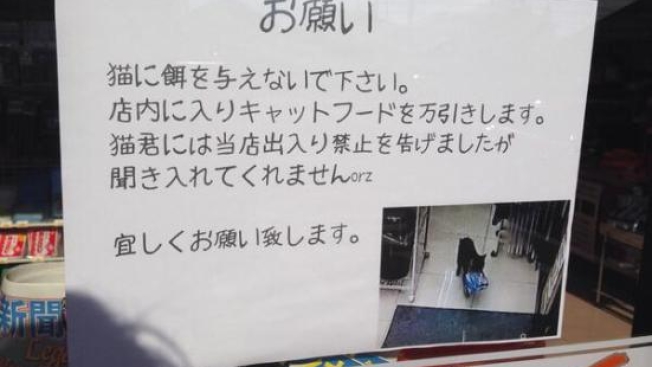 お願い
猫に餌を与えないで下さい。
店内に入りキャットフードを万引きします。
猫君には当店出入り禁止を告げましたが
聞き入れてくれませんorz
宜しくお願い致します。
新聞